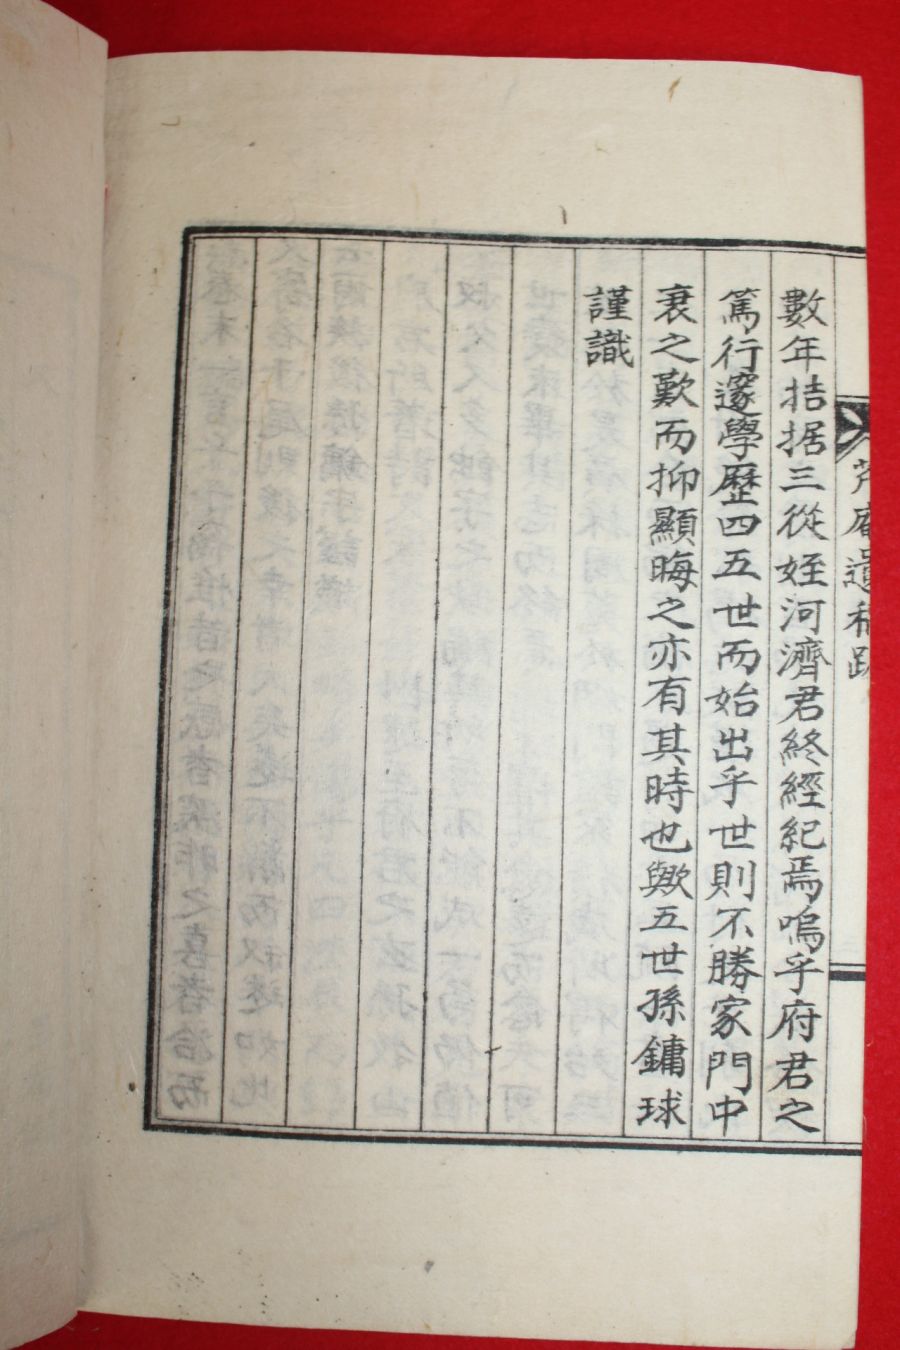 芹庵遺稿跋
數年拮据三從姪河濟君終經紀焉嗚乎府君之
篤行邃學歷四五世而始出乎世則不勝家門中
衰之歎而抑顯晦之亦有其時也歟五世孫鏞球
謹識